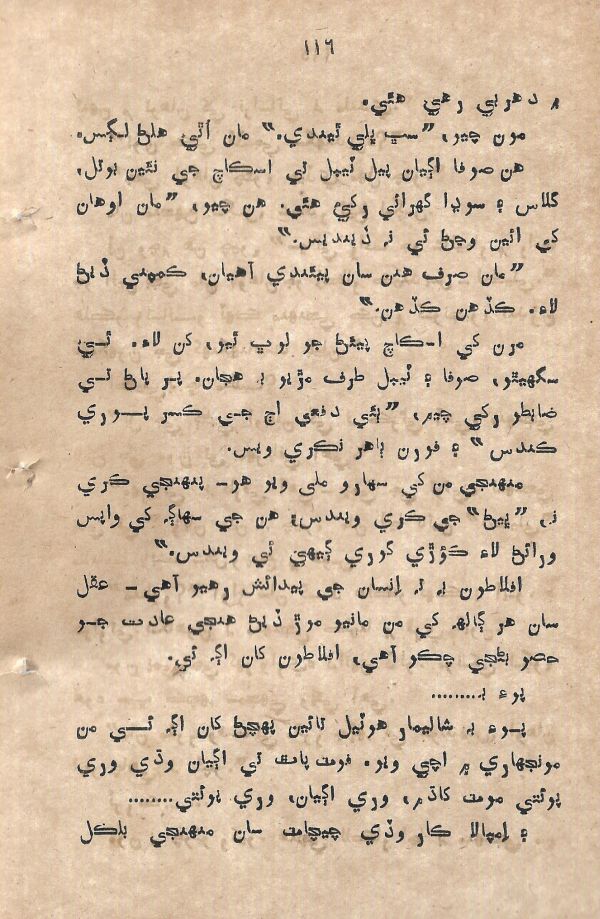 ١١٦
۾ ڌهر پي رهي هئي.
مون چيو، ”سڀ ڀلي ٿيندي.“ مان اُٿي هلڻ لڳس.
هن صوفا اڳيان پيل ٽيبل تي اسڪاچ جي نئين بوتل،
گلاس ۽ سوڍا گهرائي رکي هئي. هن چيو، ”مان اوهان
کي ائين وڃڻ ئي نہ ڏيندس.“
”مان صرف هنن سان پيئندي آهيان، ڪمپني ڏيڻ
لاءِ. ڪڏهن ڪڏهن.“
مون کي اسڪاچ پيئڻ جو لوڀ ٿيو، کن لاءِ. ٿي
سگهيٿو، صوفا ۽ ٽيبل طرف مڙيو بہ هجان. پر پاڻ تي
ضابطو رکي چيم، ”ٻئي دفعي اڄ جي ڪسر پوري
ڪندس“ ۽ فورن ٻاهر نڪري ويس.
منهنجي من کي سهارو ملي ويو هو_ پنهنجي ڪري
نہ، ”ڀيڻ“ جي ڪري ويندس؛ هن جي سهاڳ کي واپس
ورائڻ لاءِ ڪؤڙي گوري ڳيهي ئي ويندس.“
افلاطون بہ تہ اِنسان جي پيدائش رهيو آهي_ عقل
سان هر ڳالهہ کي من مانيو موڙ ڏيڻ هنجي عادت جو
حصو بڻجي چڪو آهي، افلاطون کان اڳہ ئي.
پوءِ بہ.........
پوءِ بہ شاليمار هوٽيل تائين پهچڻ کان اڳہ ئي من
مونجهاري ۾ اچي ويو. فوٽ پاٿ تي اڳيان وڌي وري
پوئتي موٽ کاڌم، وري اڳيان، وري پوئتي........
۽ اِمپالا ڪار وڏي چيچاٽ سان منهنجي بلڪل